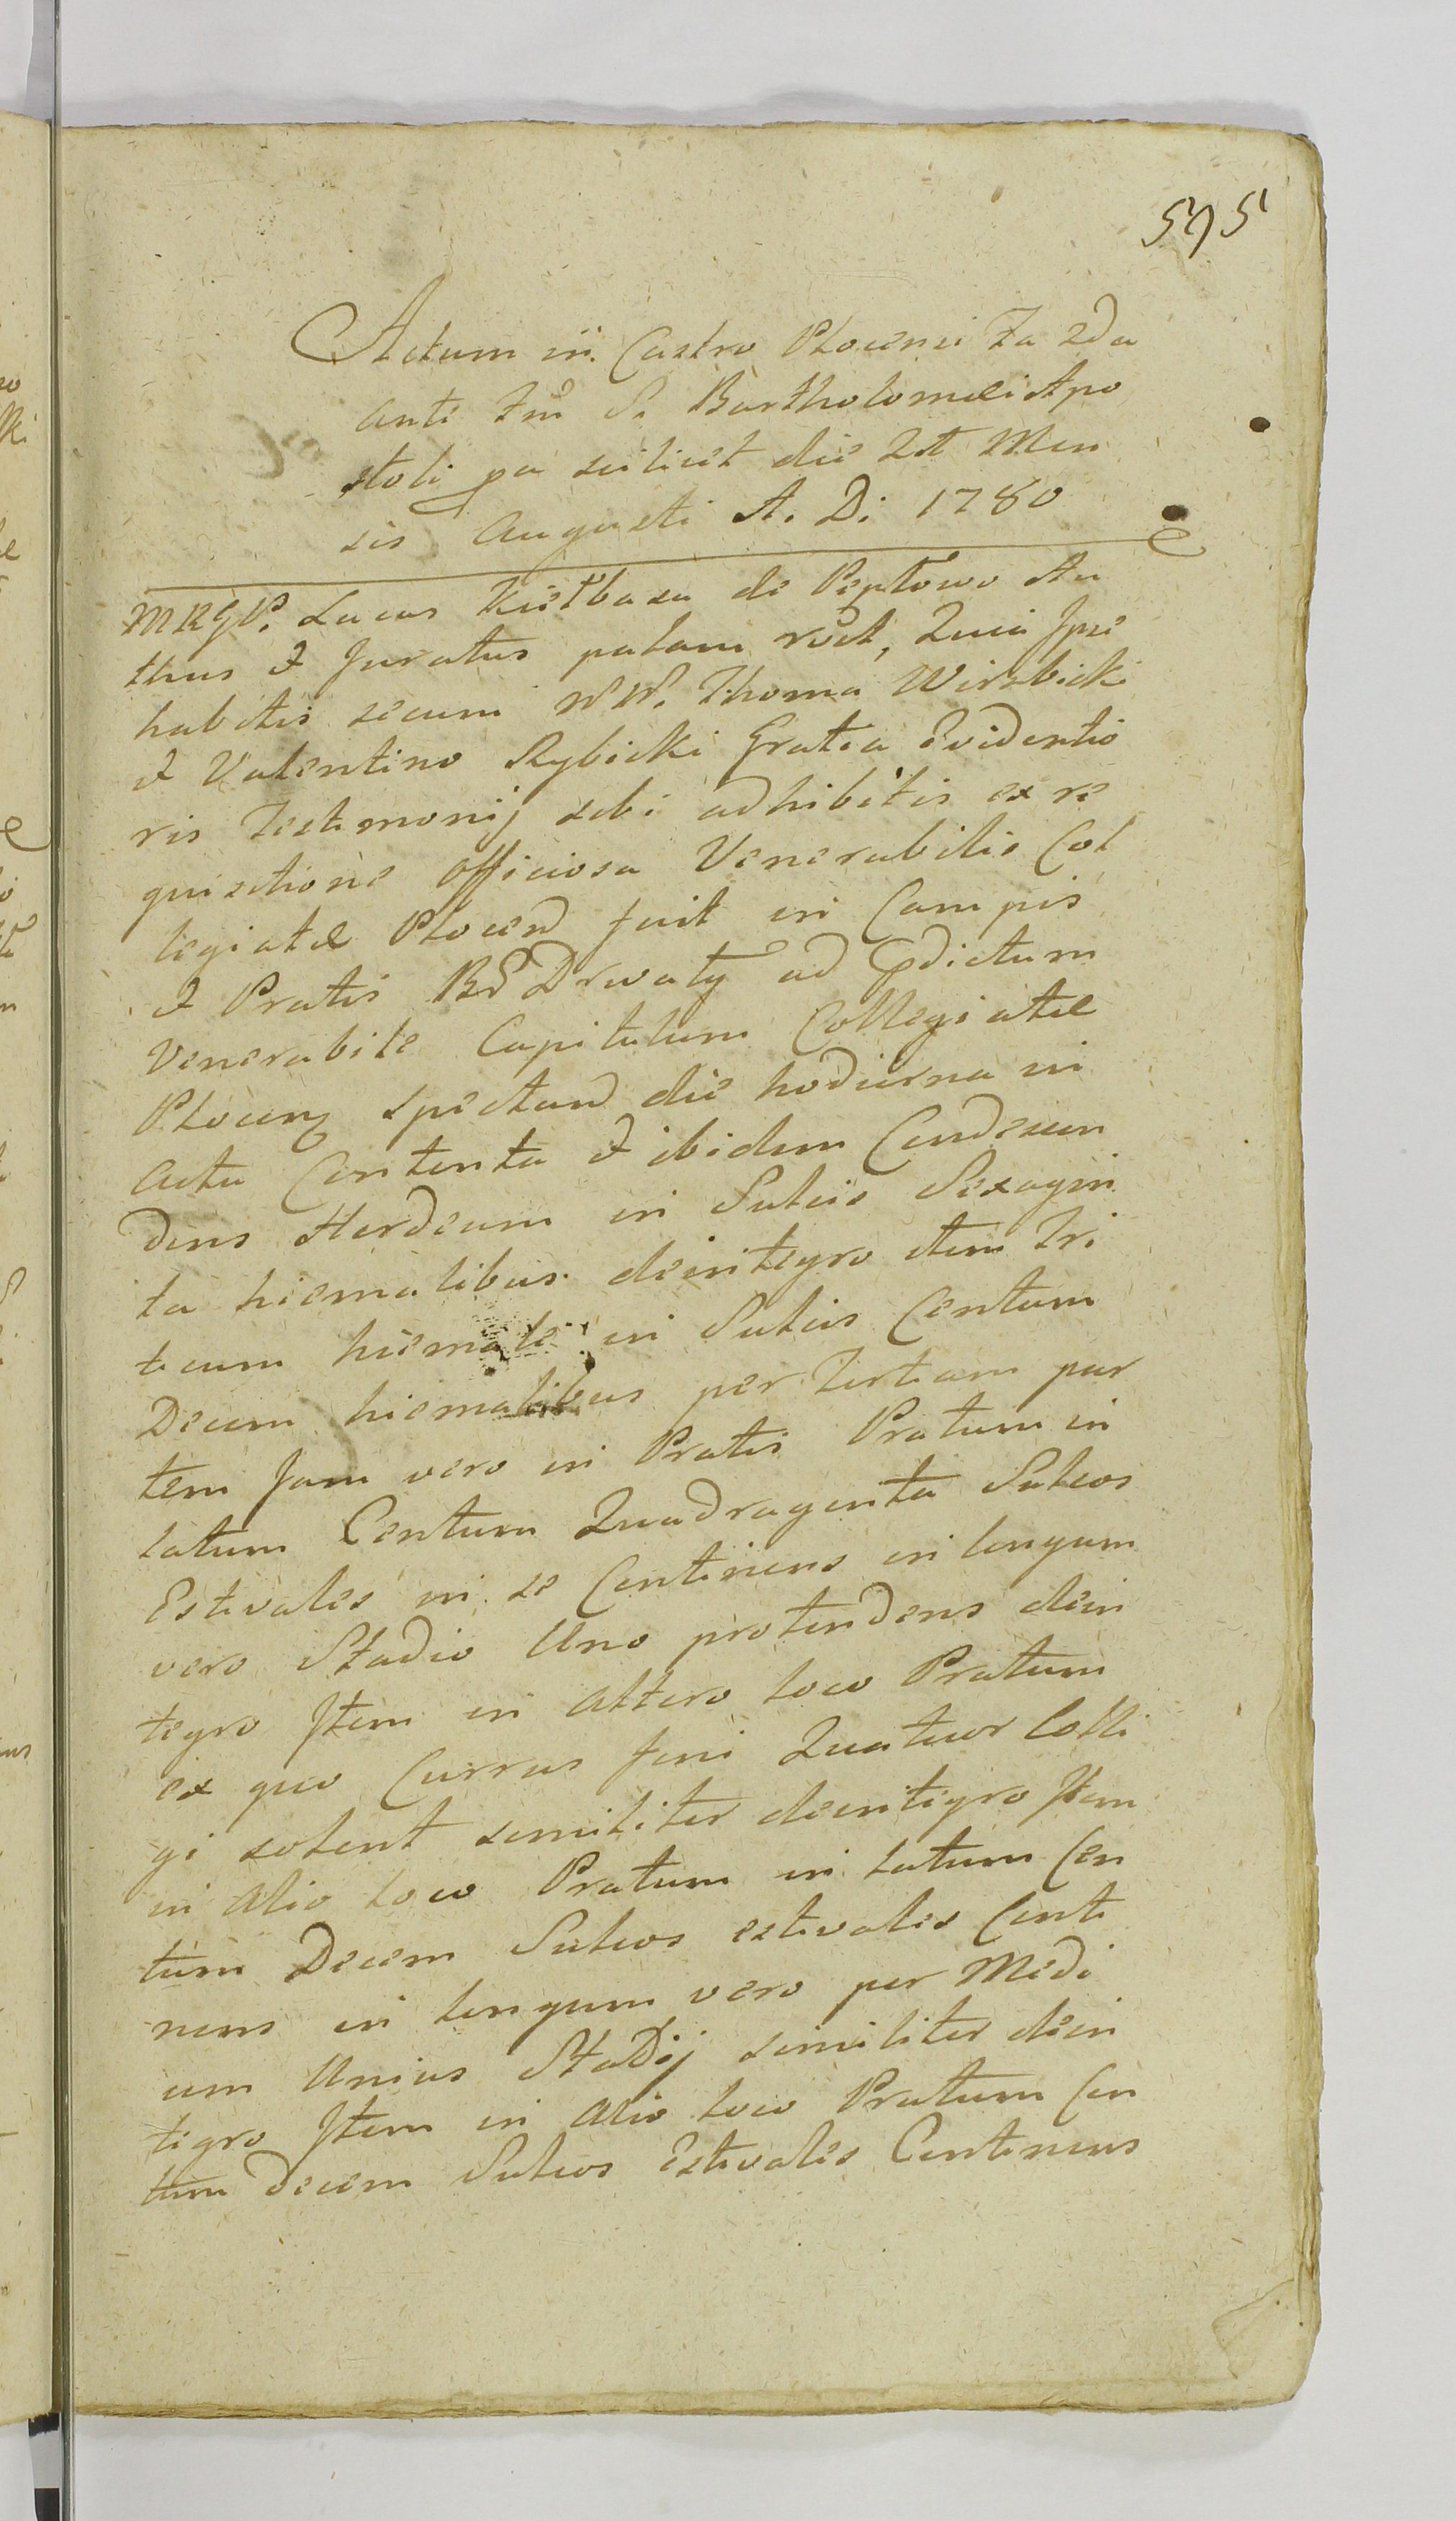 595
Actum in Castro Plocensi Fa 2da
ante Fm S. Bartholomaei Apo
stoli pa scilicet die 21 Men
sis Augusti A. D. 1780
MRGP. Lucas Kiełbasa de Peptowo Au
thus et Juratus palam rvt, Quia Ipse
habitis secum NN. Thoma Wirzbicki
et Valentino Rybicki Gratia Evidentio
ris Testimonij sibi adhibitis ex re
quisitione officiosa Venerabilis Col
legiatae Plocen fuit in Campis
et Pratis Drwaty ad Edictum
Venerabile Capitulum Collegiatae
Plocen spectan die hodierna in
actu Contenta et ibidem Condescen
dens Hordeum in Sulcis Sexagin
ta hiemalibus deintegro item Tri
ticum hiemale in Sulcis Centum
Decem hiemalibus per Tertiam par
tem Jam vero in Pratis Pratum in
latum Centum Quadraginta Sulcos
Estivales in se Continens in longum
vero Stadio Uno protendens dein
tegro Item in altero loco Pratum
ex quo Currus feni Quatuor Colli
gi solent similiter deintegro Item
in alio loco Pratum in latum Cen
tum Decem Sulcos estivales Conti
nens in longum vero per Medi
um Unius Stadij similiter dein
tegro Item in alio loco Pratum Cen
tum decem Sulcos Estivales Continens